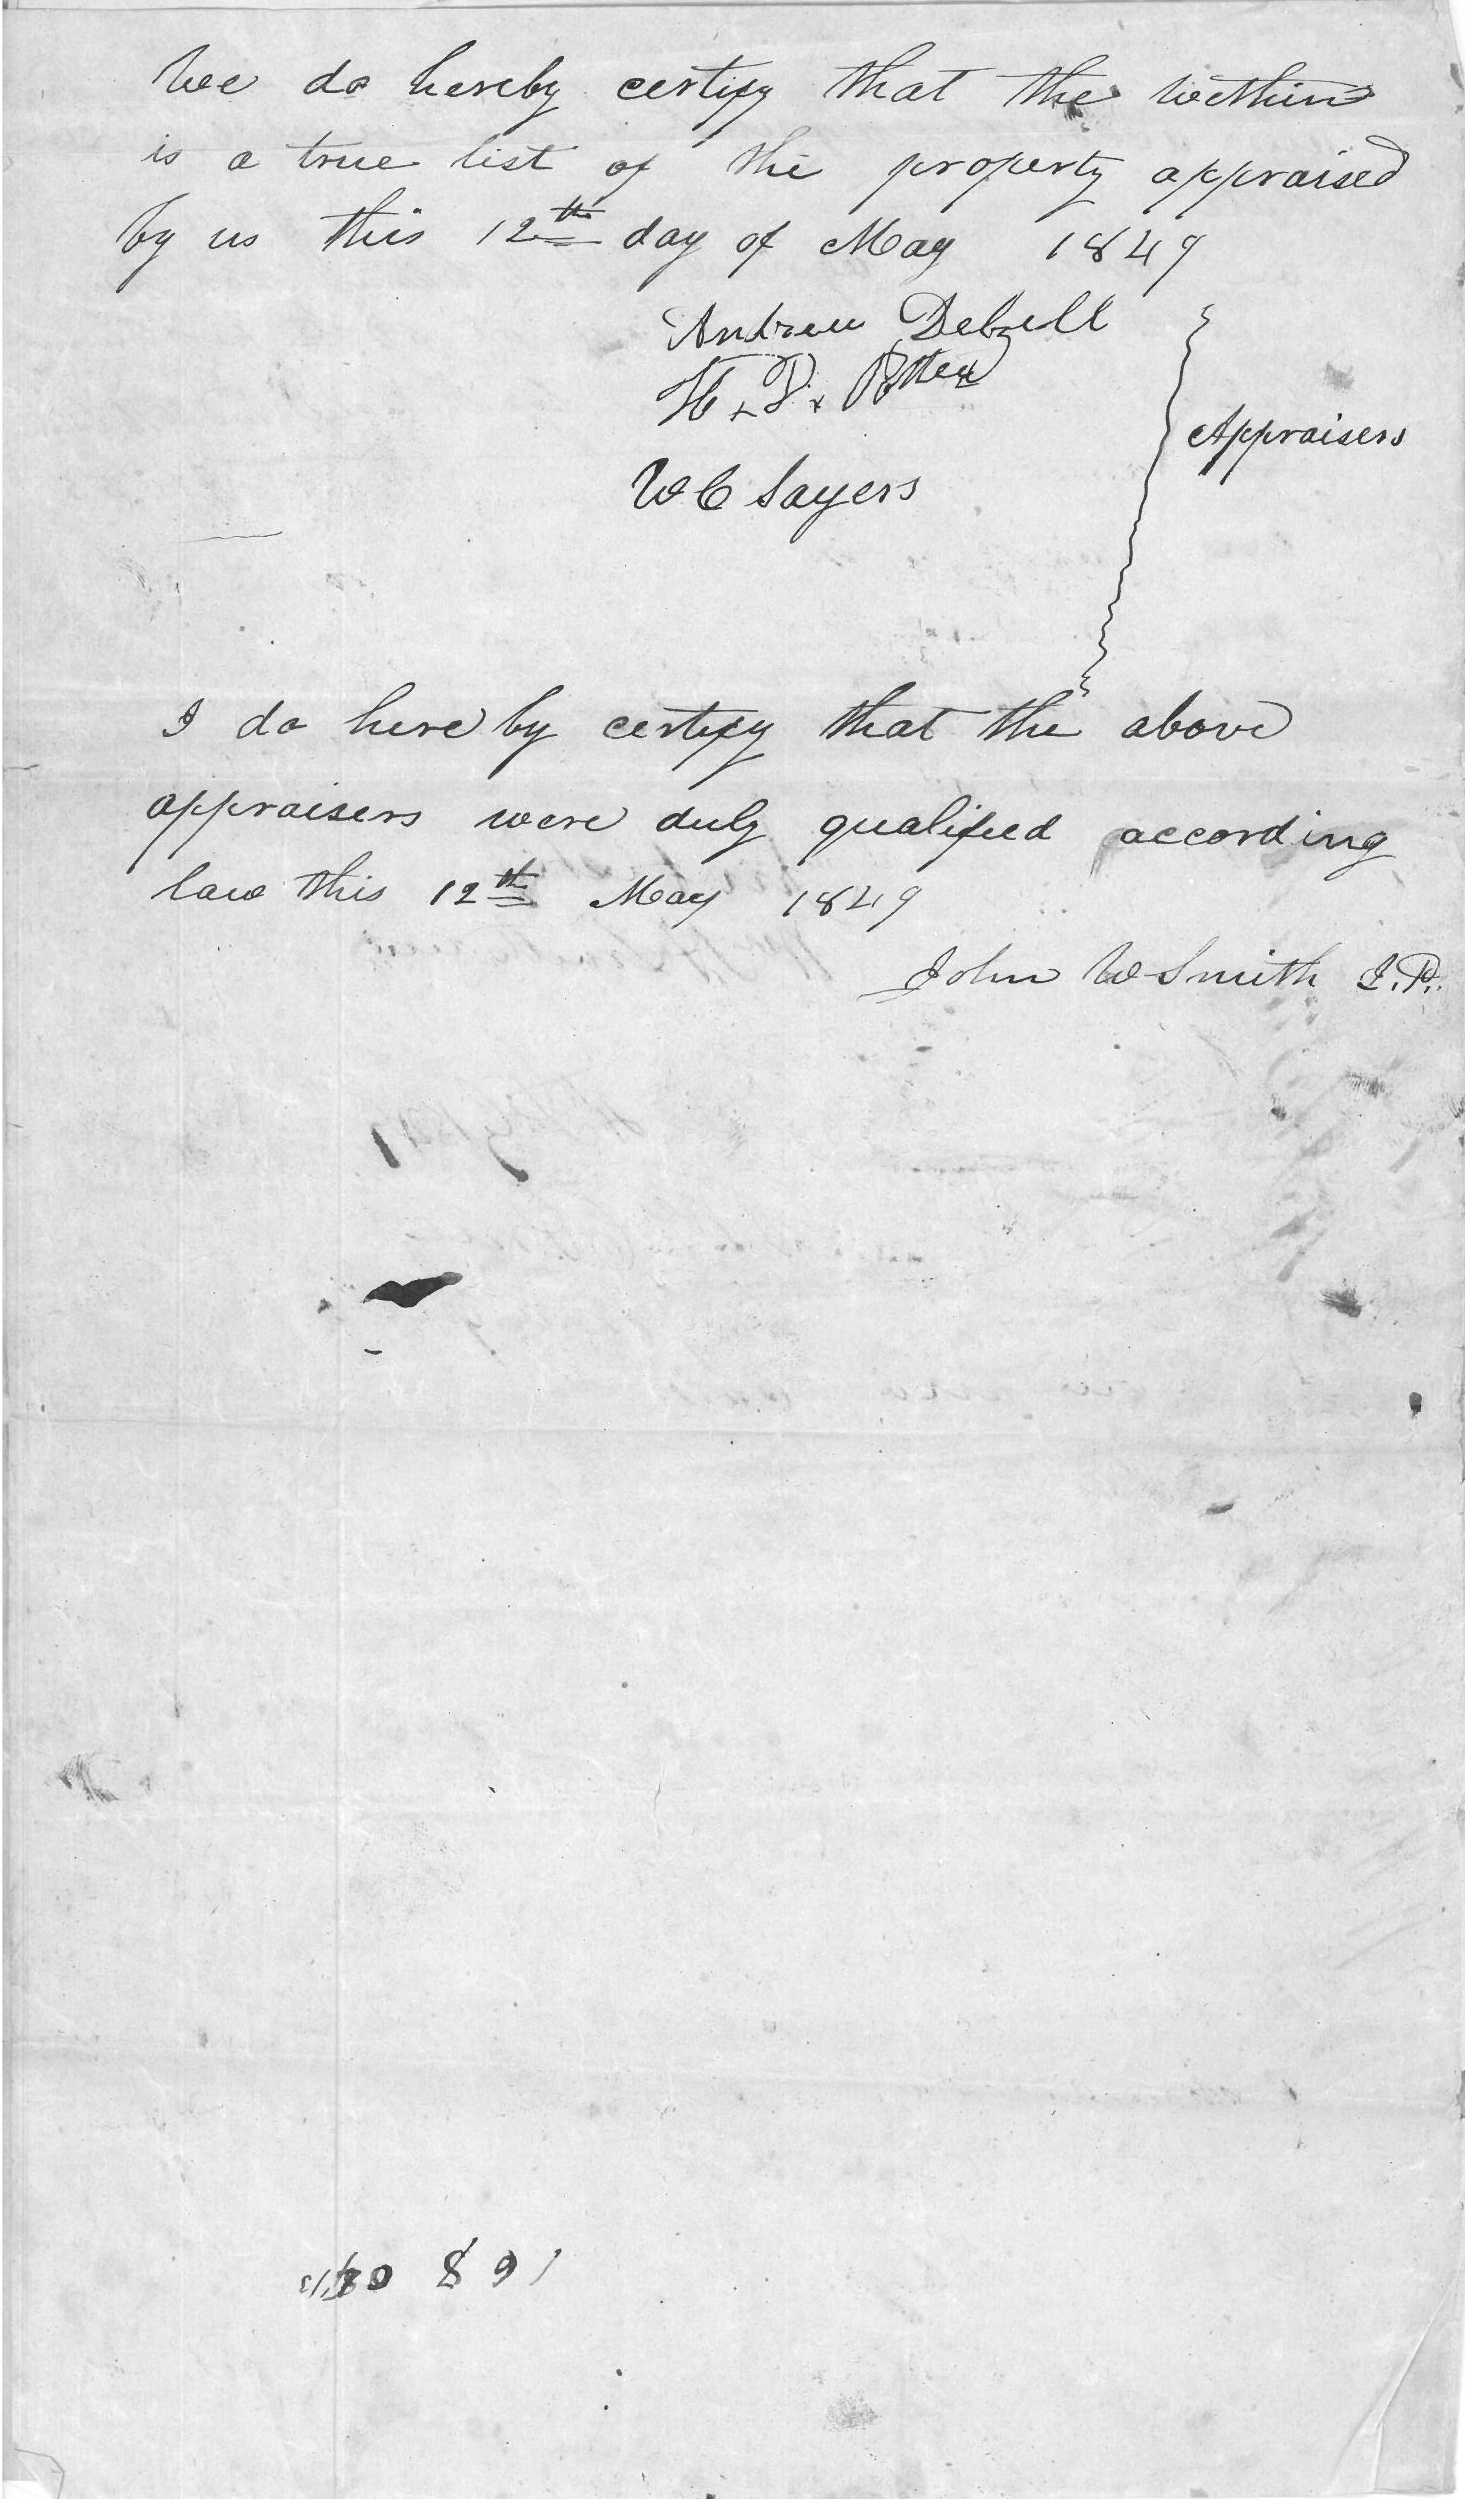 We do hereby certify that the within
is a true list of the property appraised
by us this 12th day of May 1849
Andrew
H. P.
W C Sayers
Appraisers
I do here by certify that the above
appraisers were duly qualified according
law this 12th May 1849
John W Smith J.P.